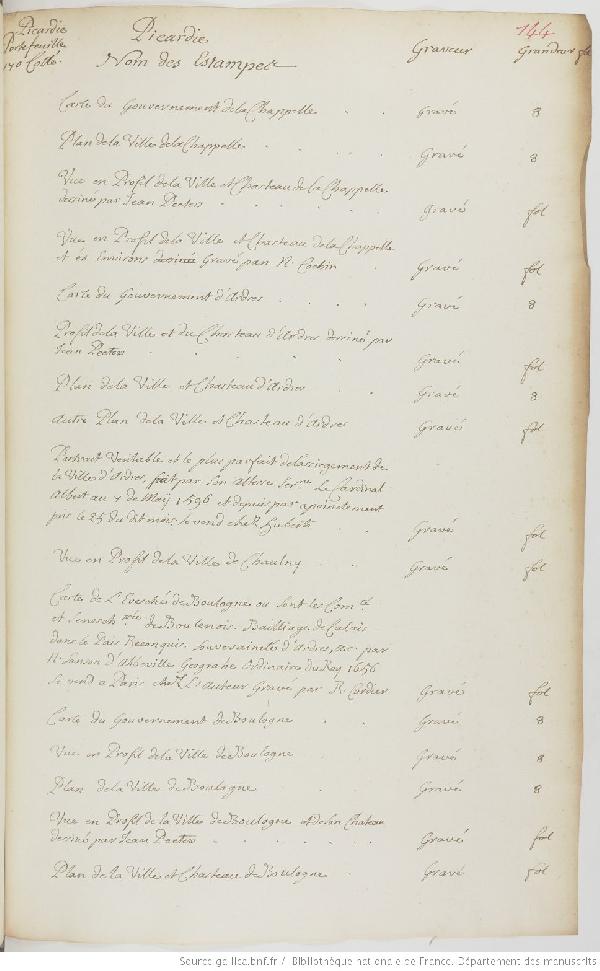 Picardie
Portefeuille
144
Picardie
Nom des Estampes
Graveur Grandeur
Carte du Gouvernement de la Chappelle . . Gravé 8
Plan de la Ville de la Chappelle . . Gravé 8
Vue en Profil de la Ville et Chasteau de la Chappelle
dessiné par Jean Peeters . . . . Gravé fol
Vue en Profil de la Ville et Chasteau de la Chappelle
et és Environs dessinée Gravé par N. Cochin . Gravé fol
Carte du Gouvernement d'Ardres . . . Gravé 8
Profil de la Ville et du Chasteau d'Ardres dessiné par
Jean Peeters . . . . Gravé fol
Plan de la Ville et Chasteau d'Ardres . . Gravé 8
Autre Plan de la Ville et Chasteau d'Ardres . Gravé fol
Portrait Veritable et le plus parfait de lassiegement de
la Ville d'Ardres, fait par Son Altesse Ser.me Le Cardinal
Albert au 7 de Maÿ 1596 et depuis par apointement
pris le 23 du dit mois se vend chez Huberti . . Gravé fol
Vue en Profil de la Ville de Chaulny . . Gravé fol
Carte de L'Evesché de Boulogne ou sont les Com.té
et Senesch.ée de Boulenois. Bailliage de Calais
dans le Pais Reconquis. Souveraineté d'Ardres, &c. par
N. Sanson d'Abbeville Geographe Ordinaire du Roy 1656
Se vend a Paris chez L'Auteur Gravé par R. Cordier Gravé fol
Carte du Gouvernement de Boulogne . . Gravé 8
Vue en Profil de la Ville de Boulogne . . Gravé 8
Plan de la Ville de Boulogne . . . Gravé 8
Vue en Profil de la Ville de Boulogne et de son Chateau
dessiné par Jean Peeters . . . . Gravé fol
Plan de la Ville et Chasteau de Boulogne . . Gravé fol
Source gallica.bnf.fr / Bibliothèque nationale de France. Département des manuscrits